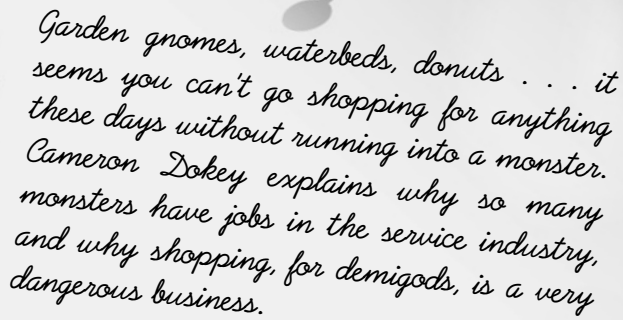 Garden gnomes, waterbeds, donuts . . . it
seems you can't go shopping for anything
these days without running into a monster.
Cameron Dokey explains why so many
monsters have jobs in the service industry,
and why shopping, for demigods, is a very
dangerous business.